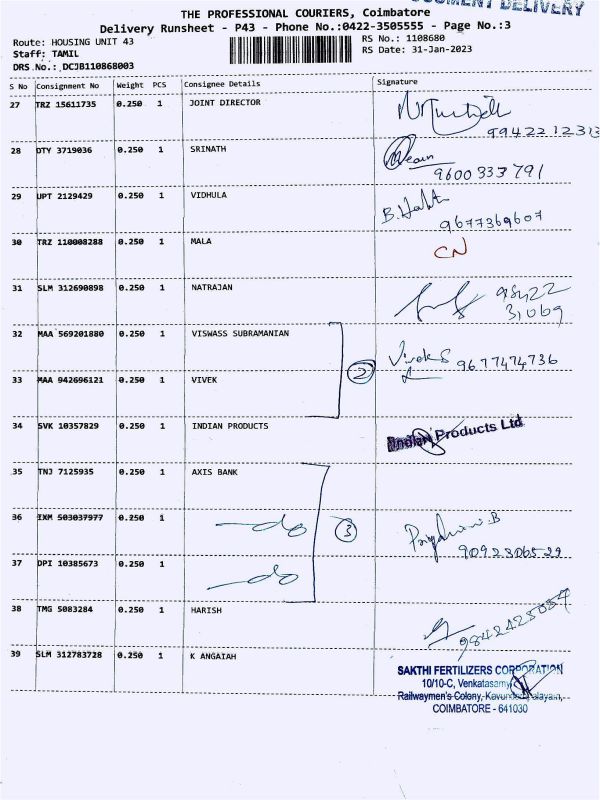 DOCUMENT DELIVERY
THE PROFESSIONAL COURIERS, Coimbatore
Delivery Runsheet - P43 - Phone No.:0422-3505555 - Page No.:3
Route: HOUSING UNIT 43
RS No.: 1108680
Staff: TAMIL
RS Date: 31-Jan-2023
DRS.No.: DCJB110868003
S No Consignment No Weight PCS Consignee Details Signature
27 TRZ 15611735 0.250 1 JOINT DIRECTOR
9942212313
28 DTY 3719036 0.250 1 SRINATH
9600333791
29 UPT 2129429 0.250 1 VIDHULA
9677369607
30 TRZ 110008288 0.250 1 MALA CN
31 SLM 312690898 0.250 1 NATRAJAN
98422
31069
32 MAA 569201880 0.250 1 VISWASS SUBRAMANIAN
2 9677474736
33 MAA 942696121 0.250 1 VIVEK
34 SVK 10357829 0.250 1 INDIAN PRODUCTS Indian Products Ltd
35 TNJ 7125935 0.250 1 AXIS BANK
36 IXM 503037977 0.250 1 —do 3
9092306529
37 DPI 10385673 0.250 1 —do
38 TMG 5083284 0.250 1 HARISH
39 SLM 312783728 0.250 1 K ANGAIAH
SAKTHI FERTILIZERS CORPORATION
10/10-C, Venkatasamy
Railwaymen's Colony,
COIMBATORE - 641030